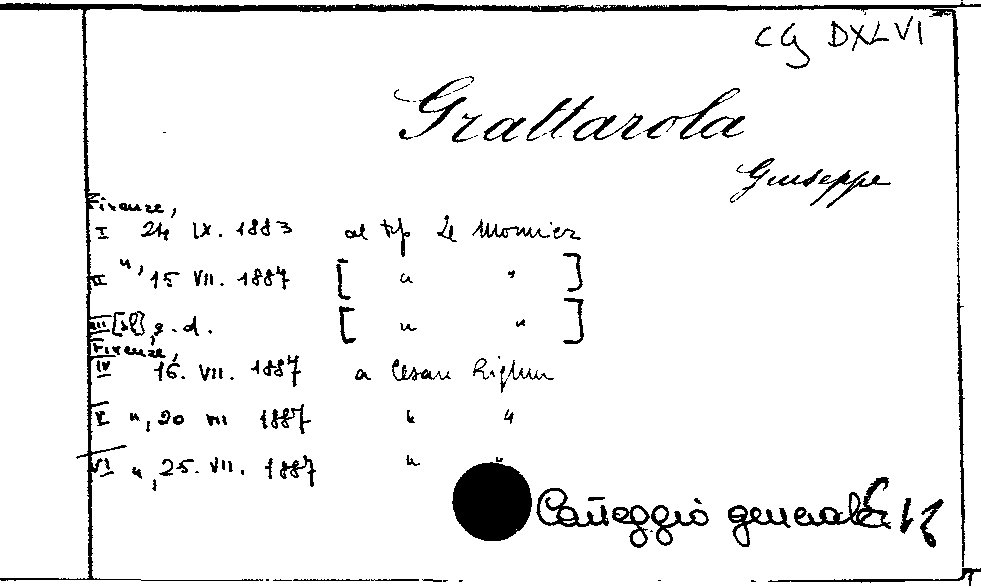 CG DXLVI
Grattarola
Giuseppe
Firenze,
I 24 IX. 1883 al tip Le Monnier
II ", 15 VII. 1887 [ " " ]
III [sl] s. d. [ " " ]
Firenze,
IV 16. VII. 1887 a Cesare
V ", 20 VII 1887 " "
VI ", 25. VII. 1887 " "
Carteggio generale